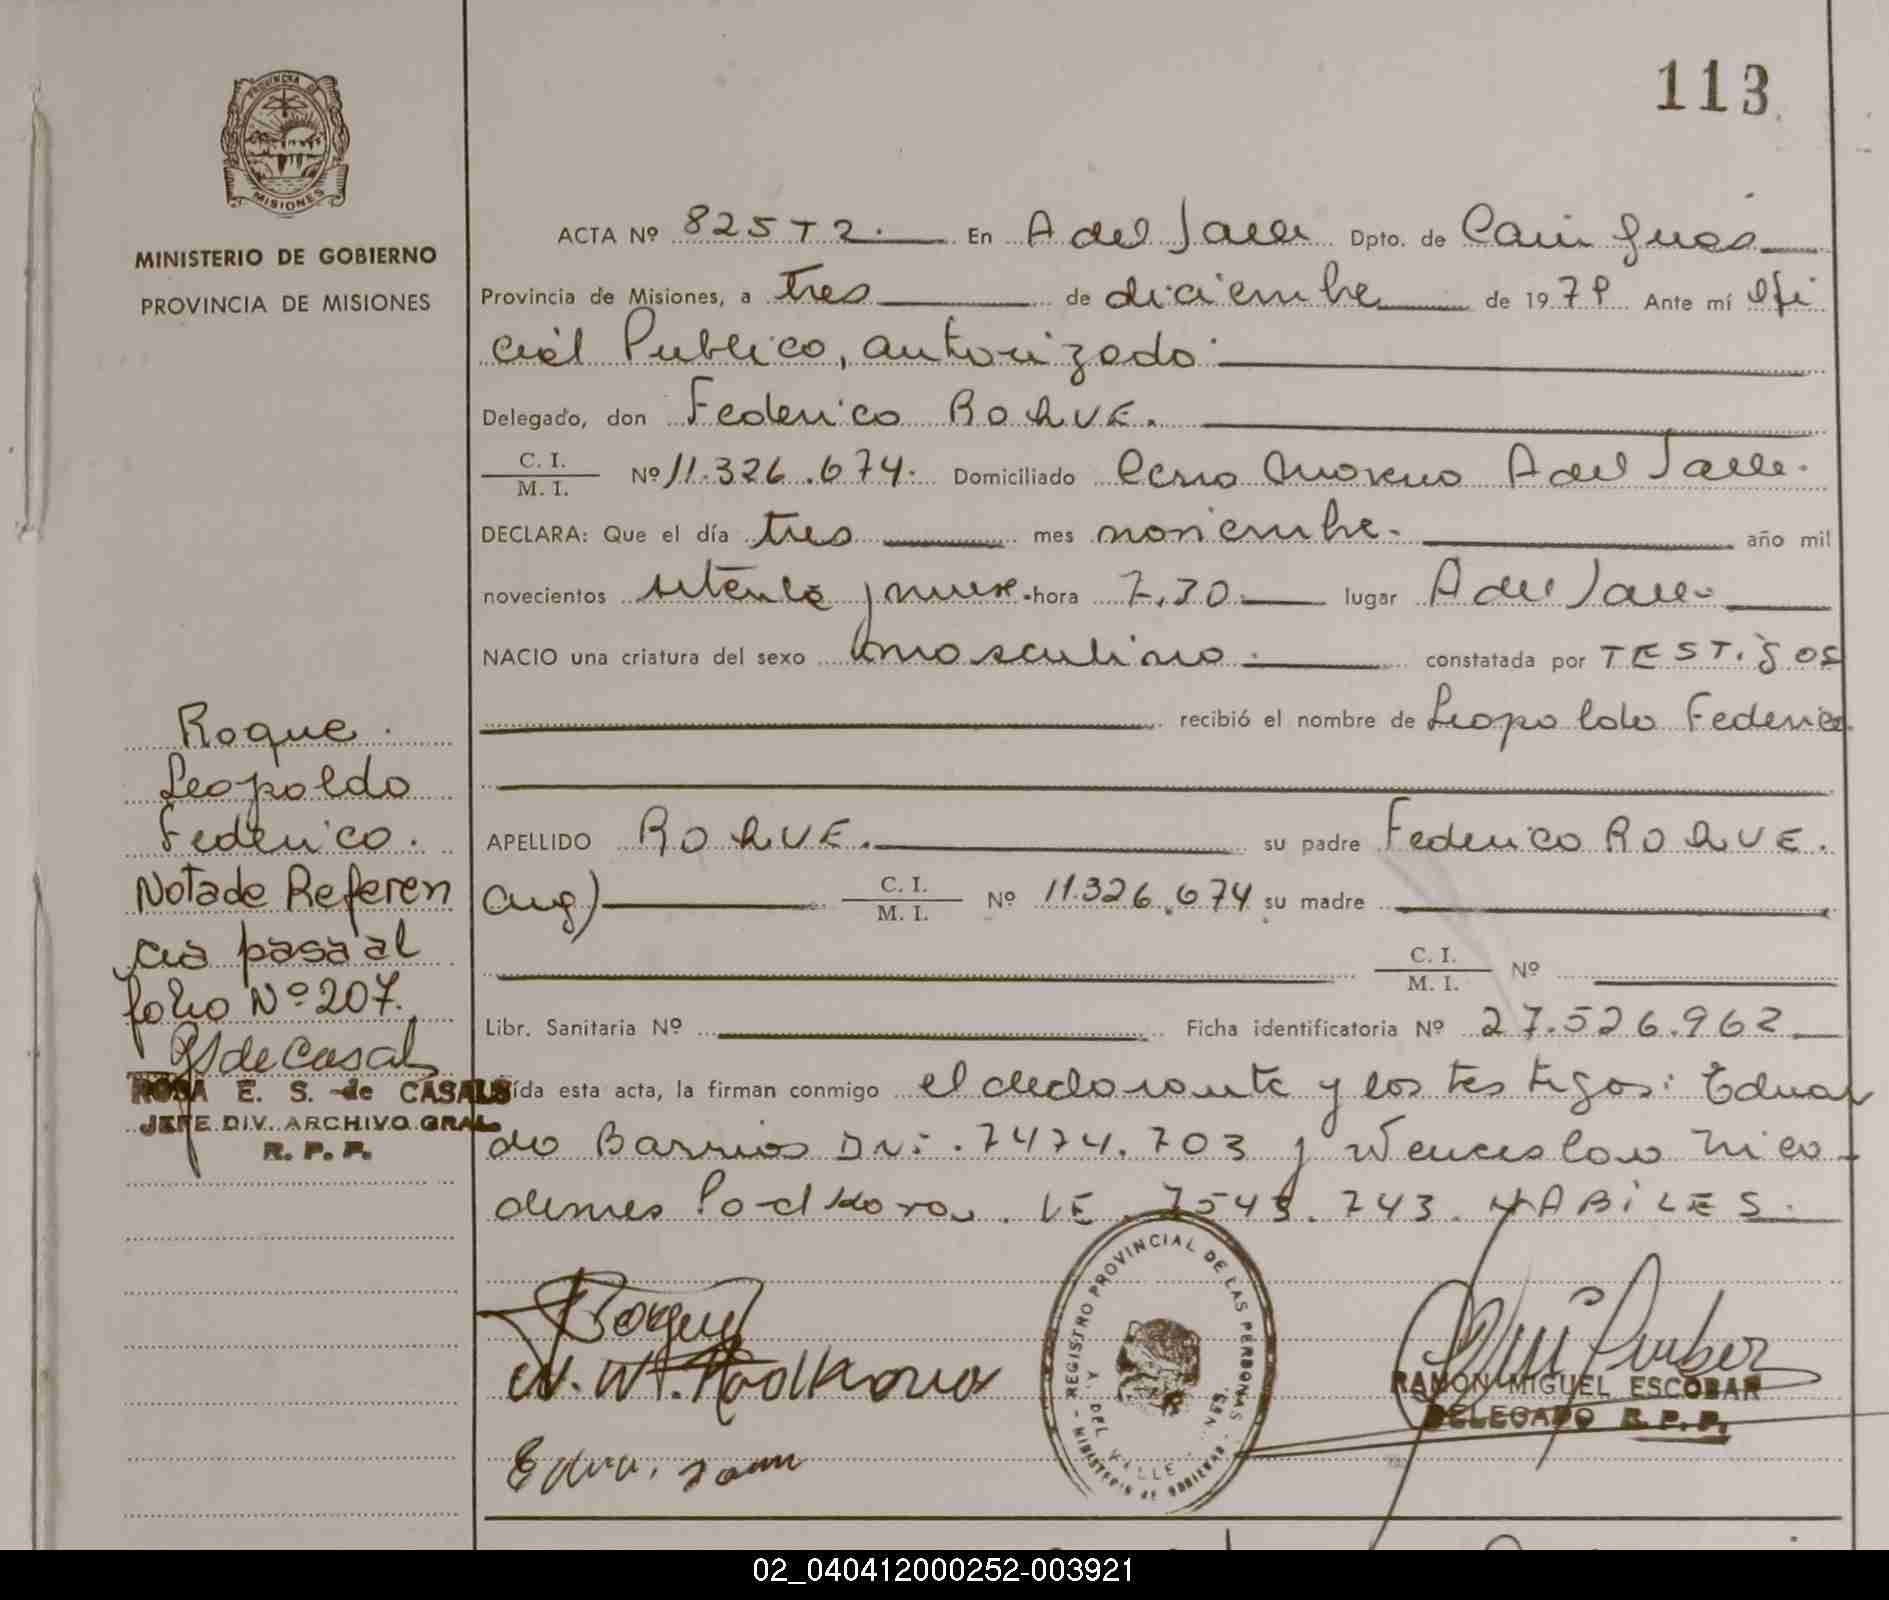 113
PROVINCIA DE MISIONES
MINISTERIO DE GOBIERNO
PROVINCIA DE MISIONES
ACTA Nº 825 T 2. En A del Valle Dpto. de Cainguás
Provincia de Misiones, a tres de diciembre de 1979 Ante mí Ofi
cial Publico, autorizado
Delegado, don Federico ROQUE.
C. I.
M. I. Nº 11.326.674. Domiciliado Cerro Moreno A del Valle.
DECLARA: Que el día tres mes noviembre. año mil
novecientos setenta y nueve. hora 7,30 lugar A del Valle
NACIO una criatura del sexo masculino constatada por TESTIGOS
recibió el nombre de Leopoldo Federico
APELLIDO ROQUE. su padre Federico ROQUE.
(arg) C. I.
M. I. Nº 11.326.674 su madre
C. I.
M. I. Nº
Libr. Sanitaria Nº Ficha identificatoria Nº 27.526.962
ída esta acta, la firman conmigo el declarante y los testigos: Eduar
do Barrios DNi. 7474.703 y Wenceslao Nico
demes Podkova. LE. 7543.743. HABiLES.
Roque.
Leopoldo
Federico.
Nota de Referen
cia pasa al
folio Nº 207.
RS de Casals
ROSA E. S. de CASALS
JEFE DIV. ARCHIVO GRAL
R. P. P.
Roque
N. W. Podkova
REGISTRO PROVINCIAL DE LAS PERSONAS
MINISTERIO DE GOBIERNO
DEL VALLE
RAMON MIGUEL ESCOBAR
DELEGADO R. P. P.
02_040412000252-003921